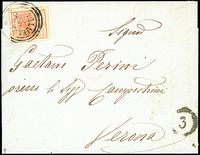 Signor
Gaetano Perini
presso li Sigi Campostrini
Verona
3